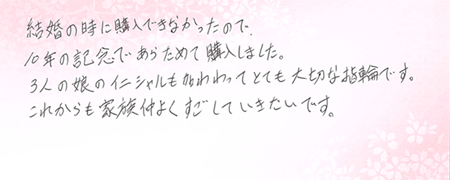 結婚の時に購入できなかったので、
10年の記念であらためて購入しました。
3人の娘のイニシャルも加わわってとても大切な指輪です。
これからも家族仲よくすごしていきたいです。